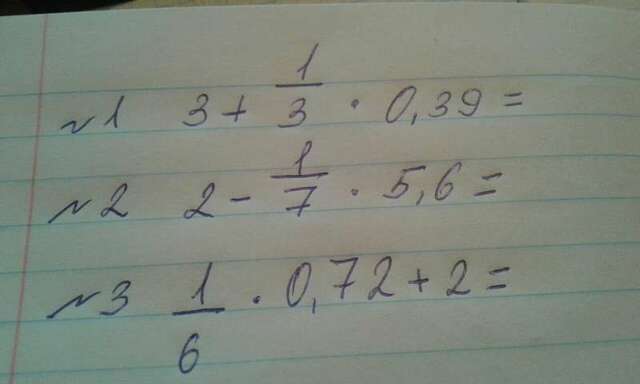 №1 3 + 1/3 · 0,39 =
№2 2 - 1/7 · 5,6 =
№3 1/6 · 0,72 + 2 =